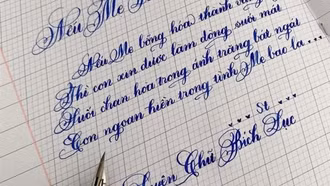 Nếu Mẹ
Nếu Mẹ bỗng hóa thành
Thì con xin được làm dòng suối mát
Suối chan hòa trong ánh trăng bát ngát
Con ngoan hiền trong tình Mẹ bao la...
St
Luyện Chữ Bích Lục